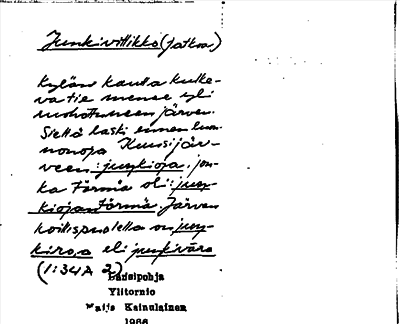 Junkivitikko (jatkoa)
Kylän kautta kulke-
va tie menee yli
järven.
Siellä laski ennen luon-
nonoja Kuusijär-
veen: junkioja, jon-
ka törmä oli: jun-
kiojantörmä. Järven
koillispuolella on jun-
eli junkivära
(1:34A 2)
Länsipohja
Ylitornio
Maija Kainulainen
1966